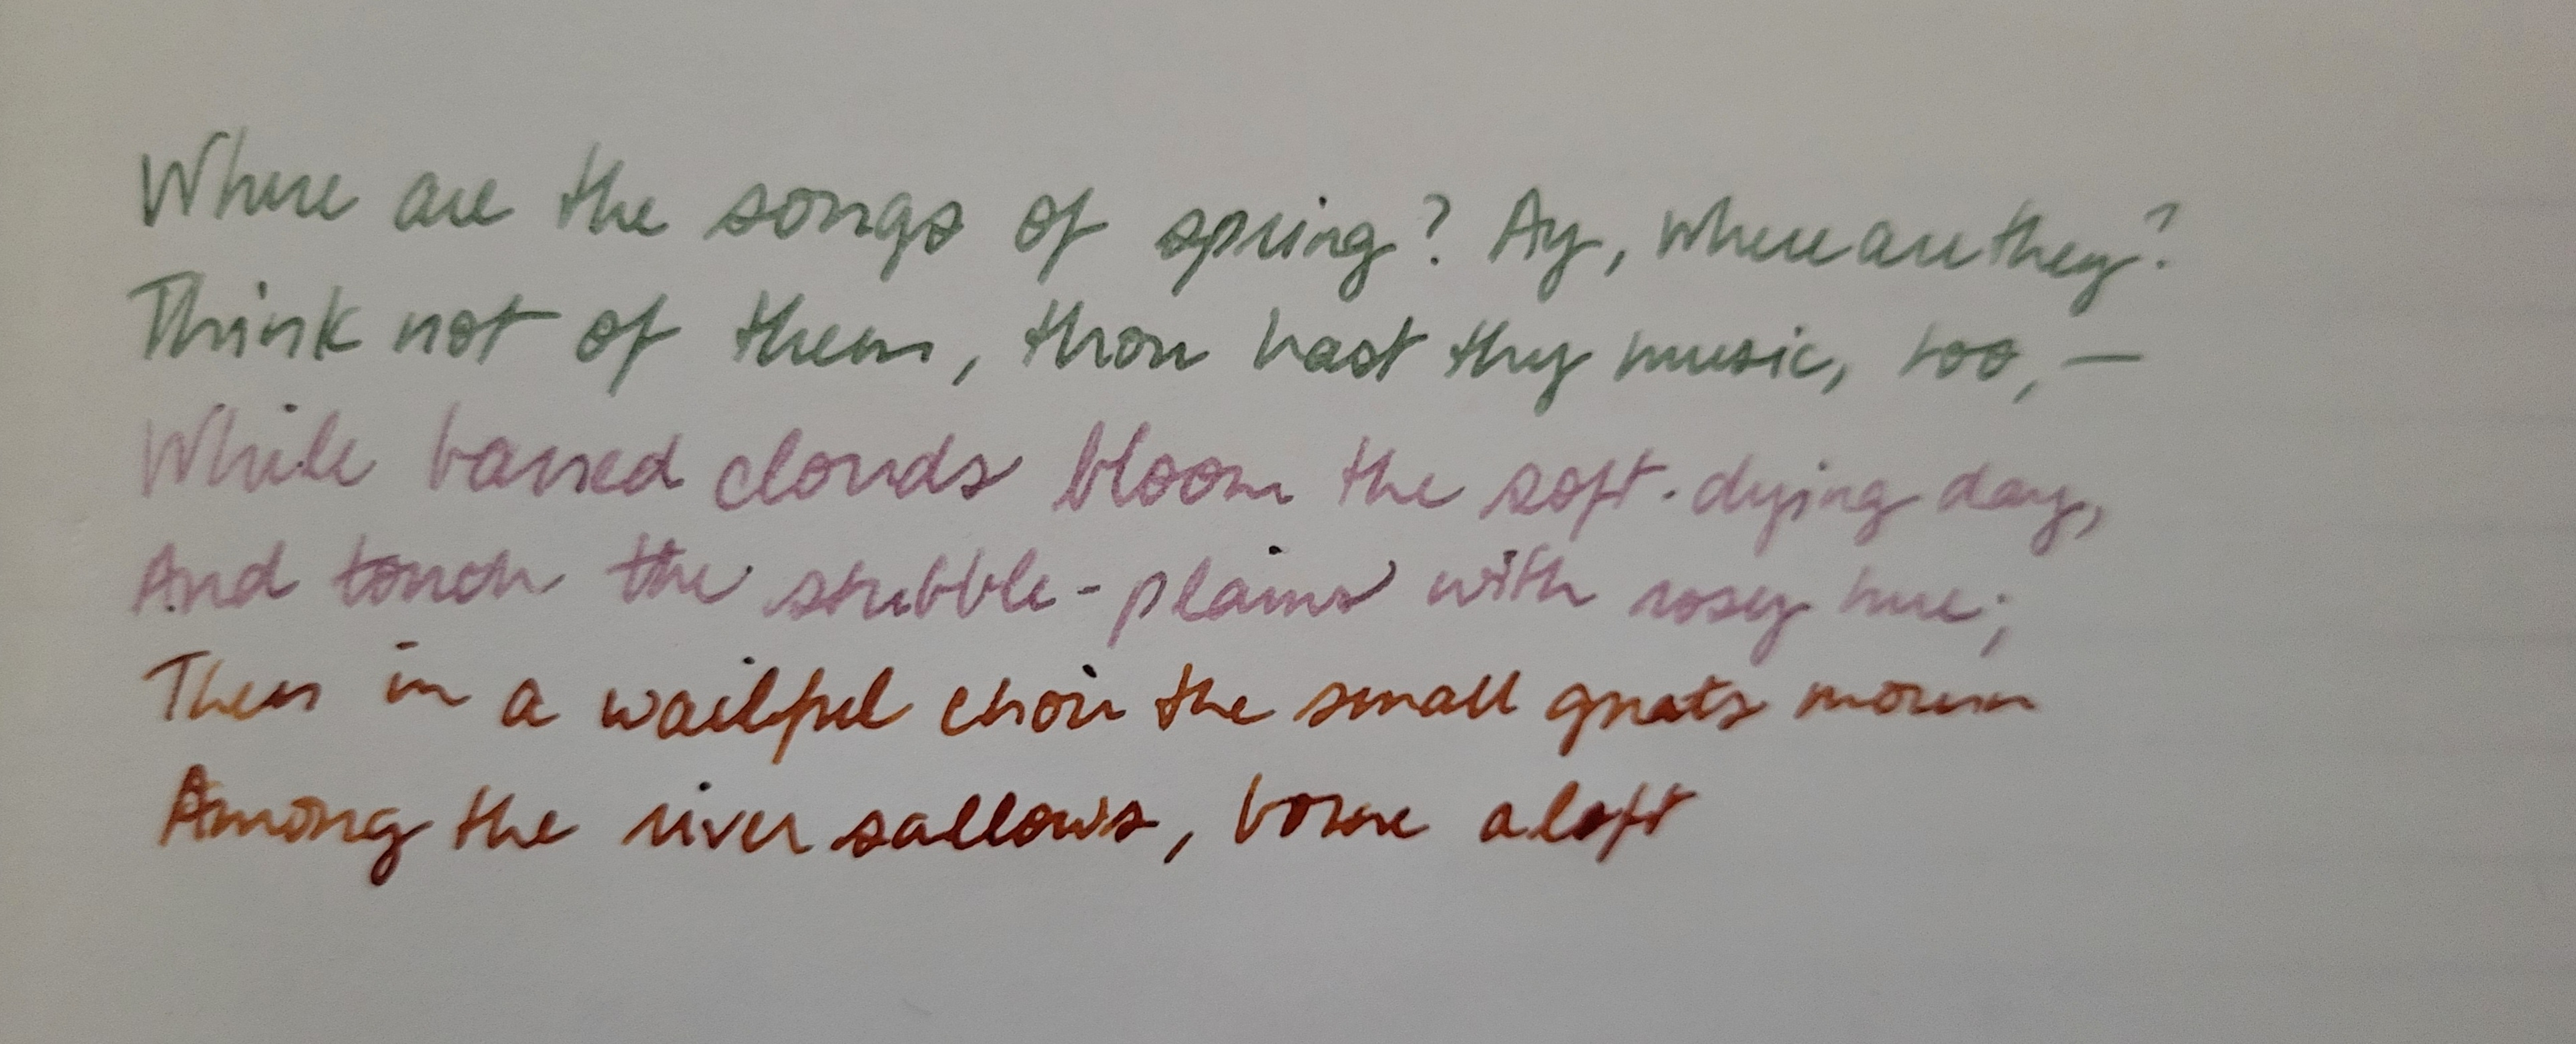 Where are the songs of spring? Ay, where are they?
Think not of them, thou hast thy music, too, —
While barred clouds bloom the soft-dying day,
And touch the stubble-plains with rosy hue;
Then in a wailful choir the small gnats mourn
Among the river sallows, borne aloft